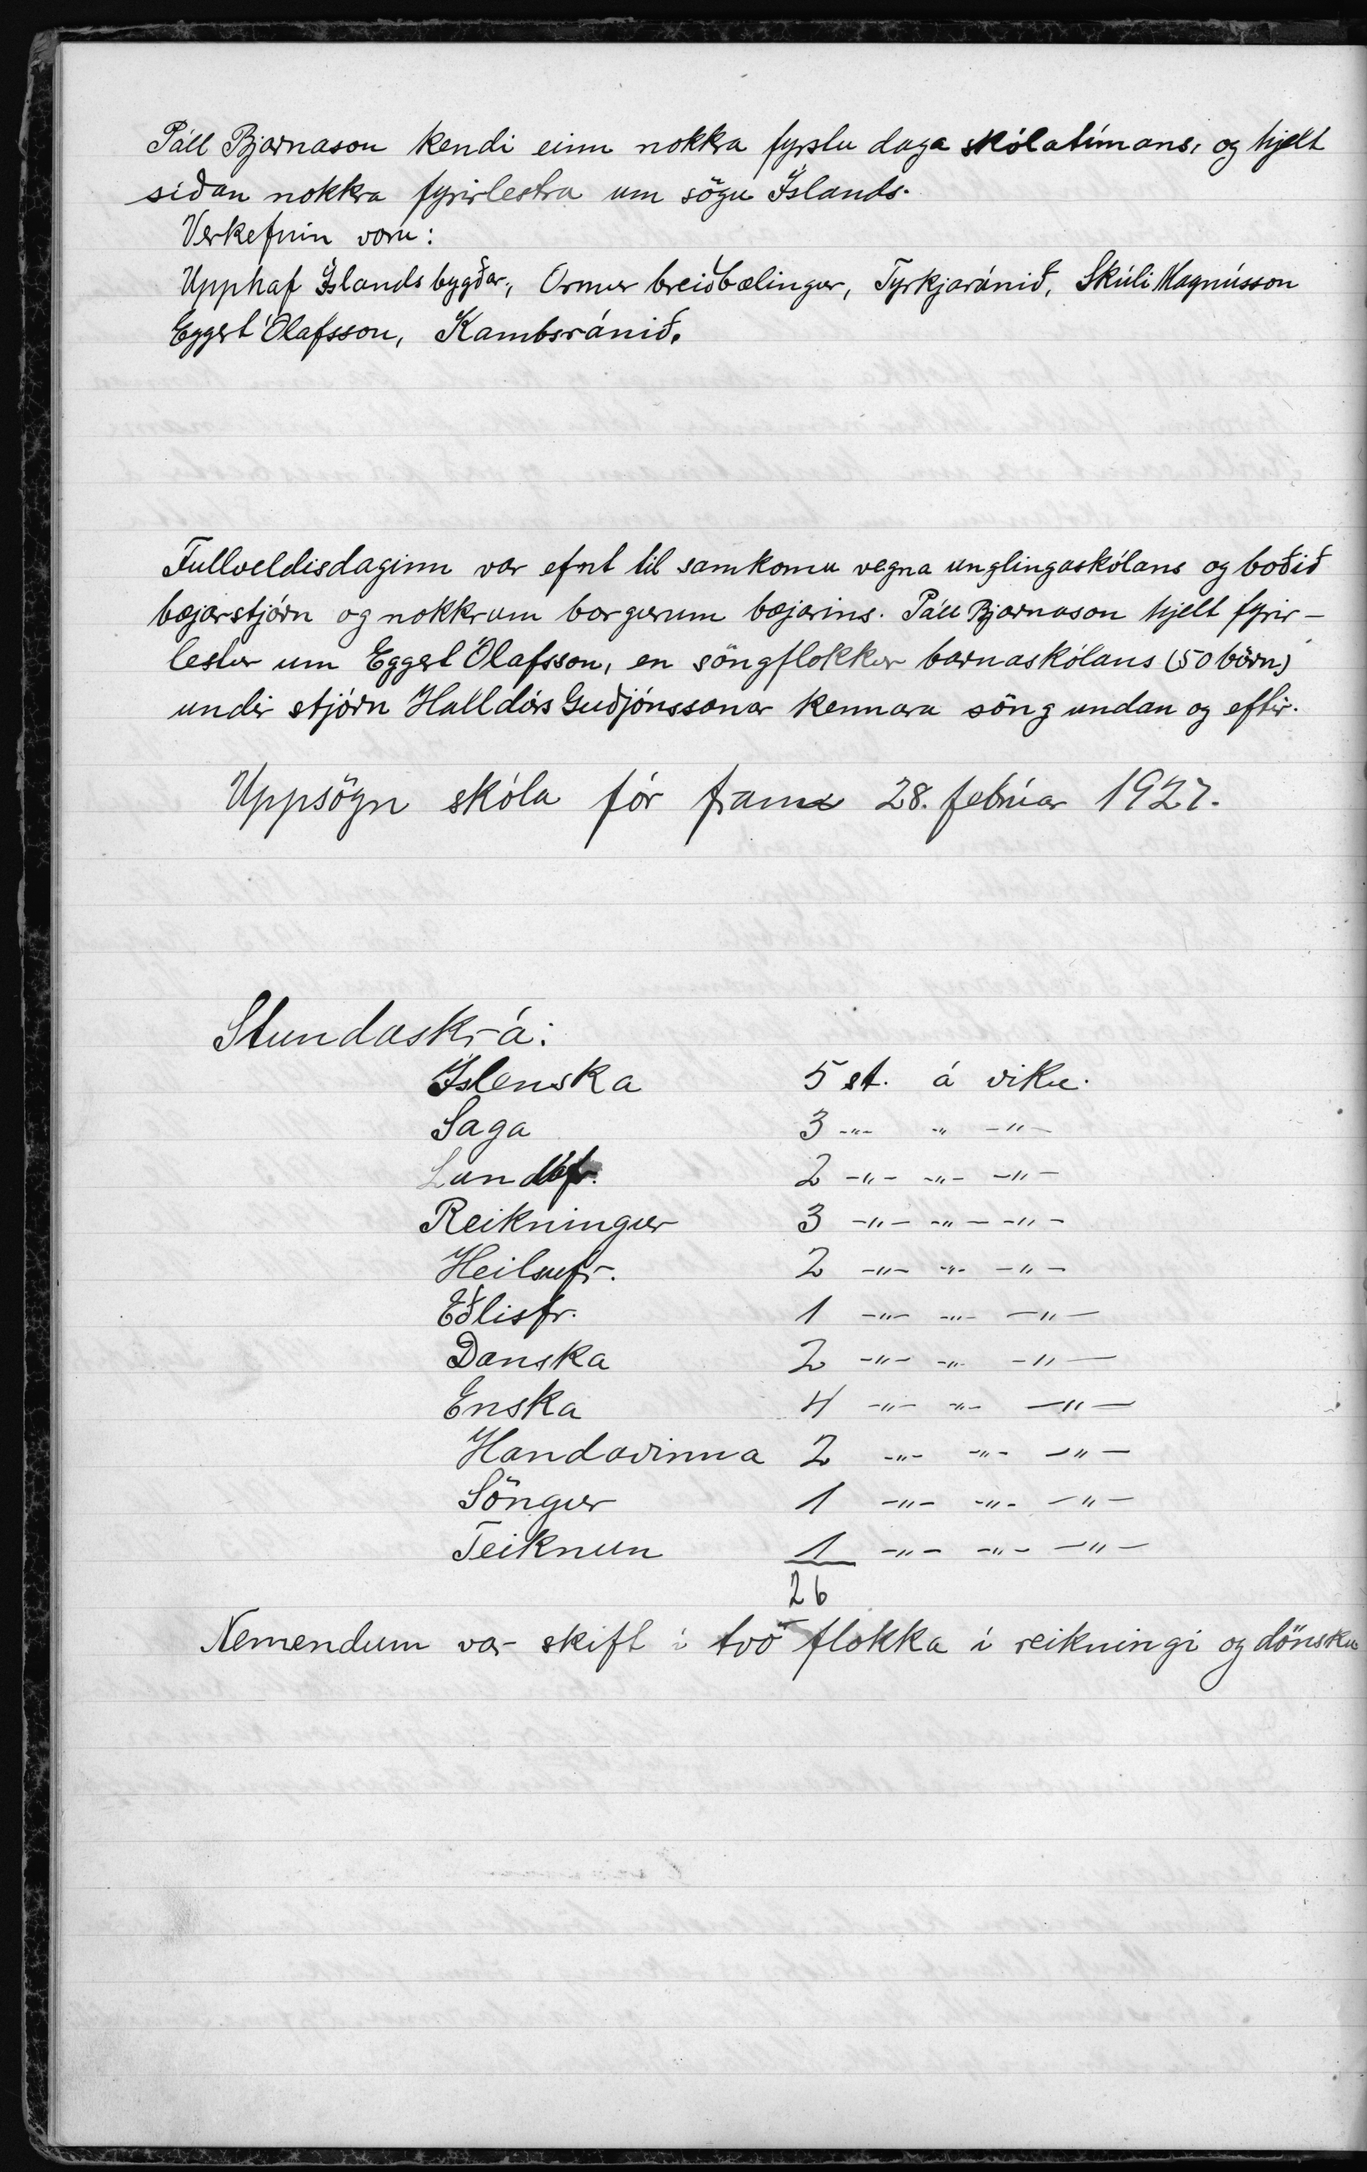 Páll Bjarnason kendi einn nokkra fyrstu daga skólatímans, og hjelt
síðan nokkra fyrirlestra um sögu Íslands.
Verkefnin voru:
Upphaf Íslandsbygðar, Ormur breiðbælingur, Tyrkjaránið, Skúli Magnússon
Eggert Ólafsson, Kambsránið.
Fullveldisdaginn var efnt til samkomu vegna unglingaskólans og boðið
bæjarstjórn og nokkrum borgurum bæjarins. Páll Bjarnason hjelt fyrir-
lestur um Eggert Ólafsson, en söngflokkur barnaskólans (50 börn)
undir stjórn Halldórs Guðjónssonar kennara söng undan og eftir.
Uppsögn skóla fór fram 28. febrúar 1927.
Stundaskrá:
Íslenska 5 st. á viku.
Saga 3 -"- " -"-
Landafr. 2 -"- -"- -"-
Reikningur 3 -"- -"- -"-
Heilsufr. 2 -"- -"- -"-
Eðlisfr. 1 -"- -"- -"-
Danska 2 -"- -"- -"-
Enska 4 -"- -"- -"-
Handavinna 2 -"- -"- -"-
Söngur 1 -"- -"- -"-
Teiknun 1 -"- -"- -"-
26
Nemendum var skift í tvo flokka í reikningi og dönsku